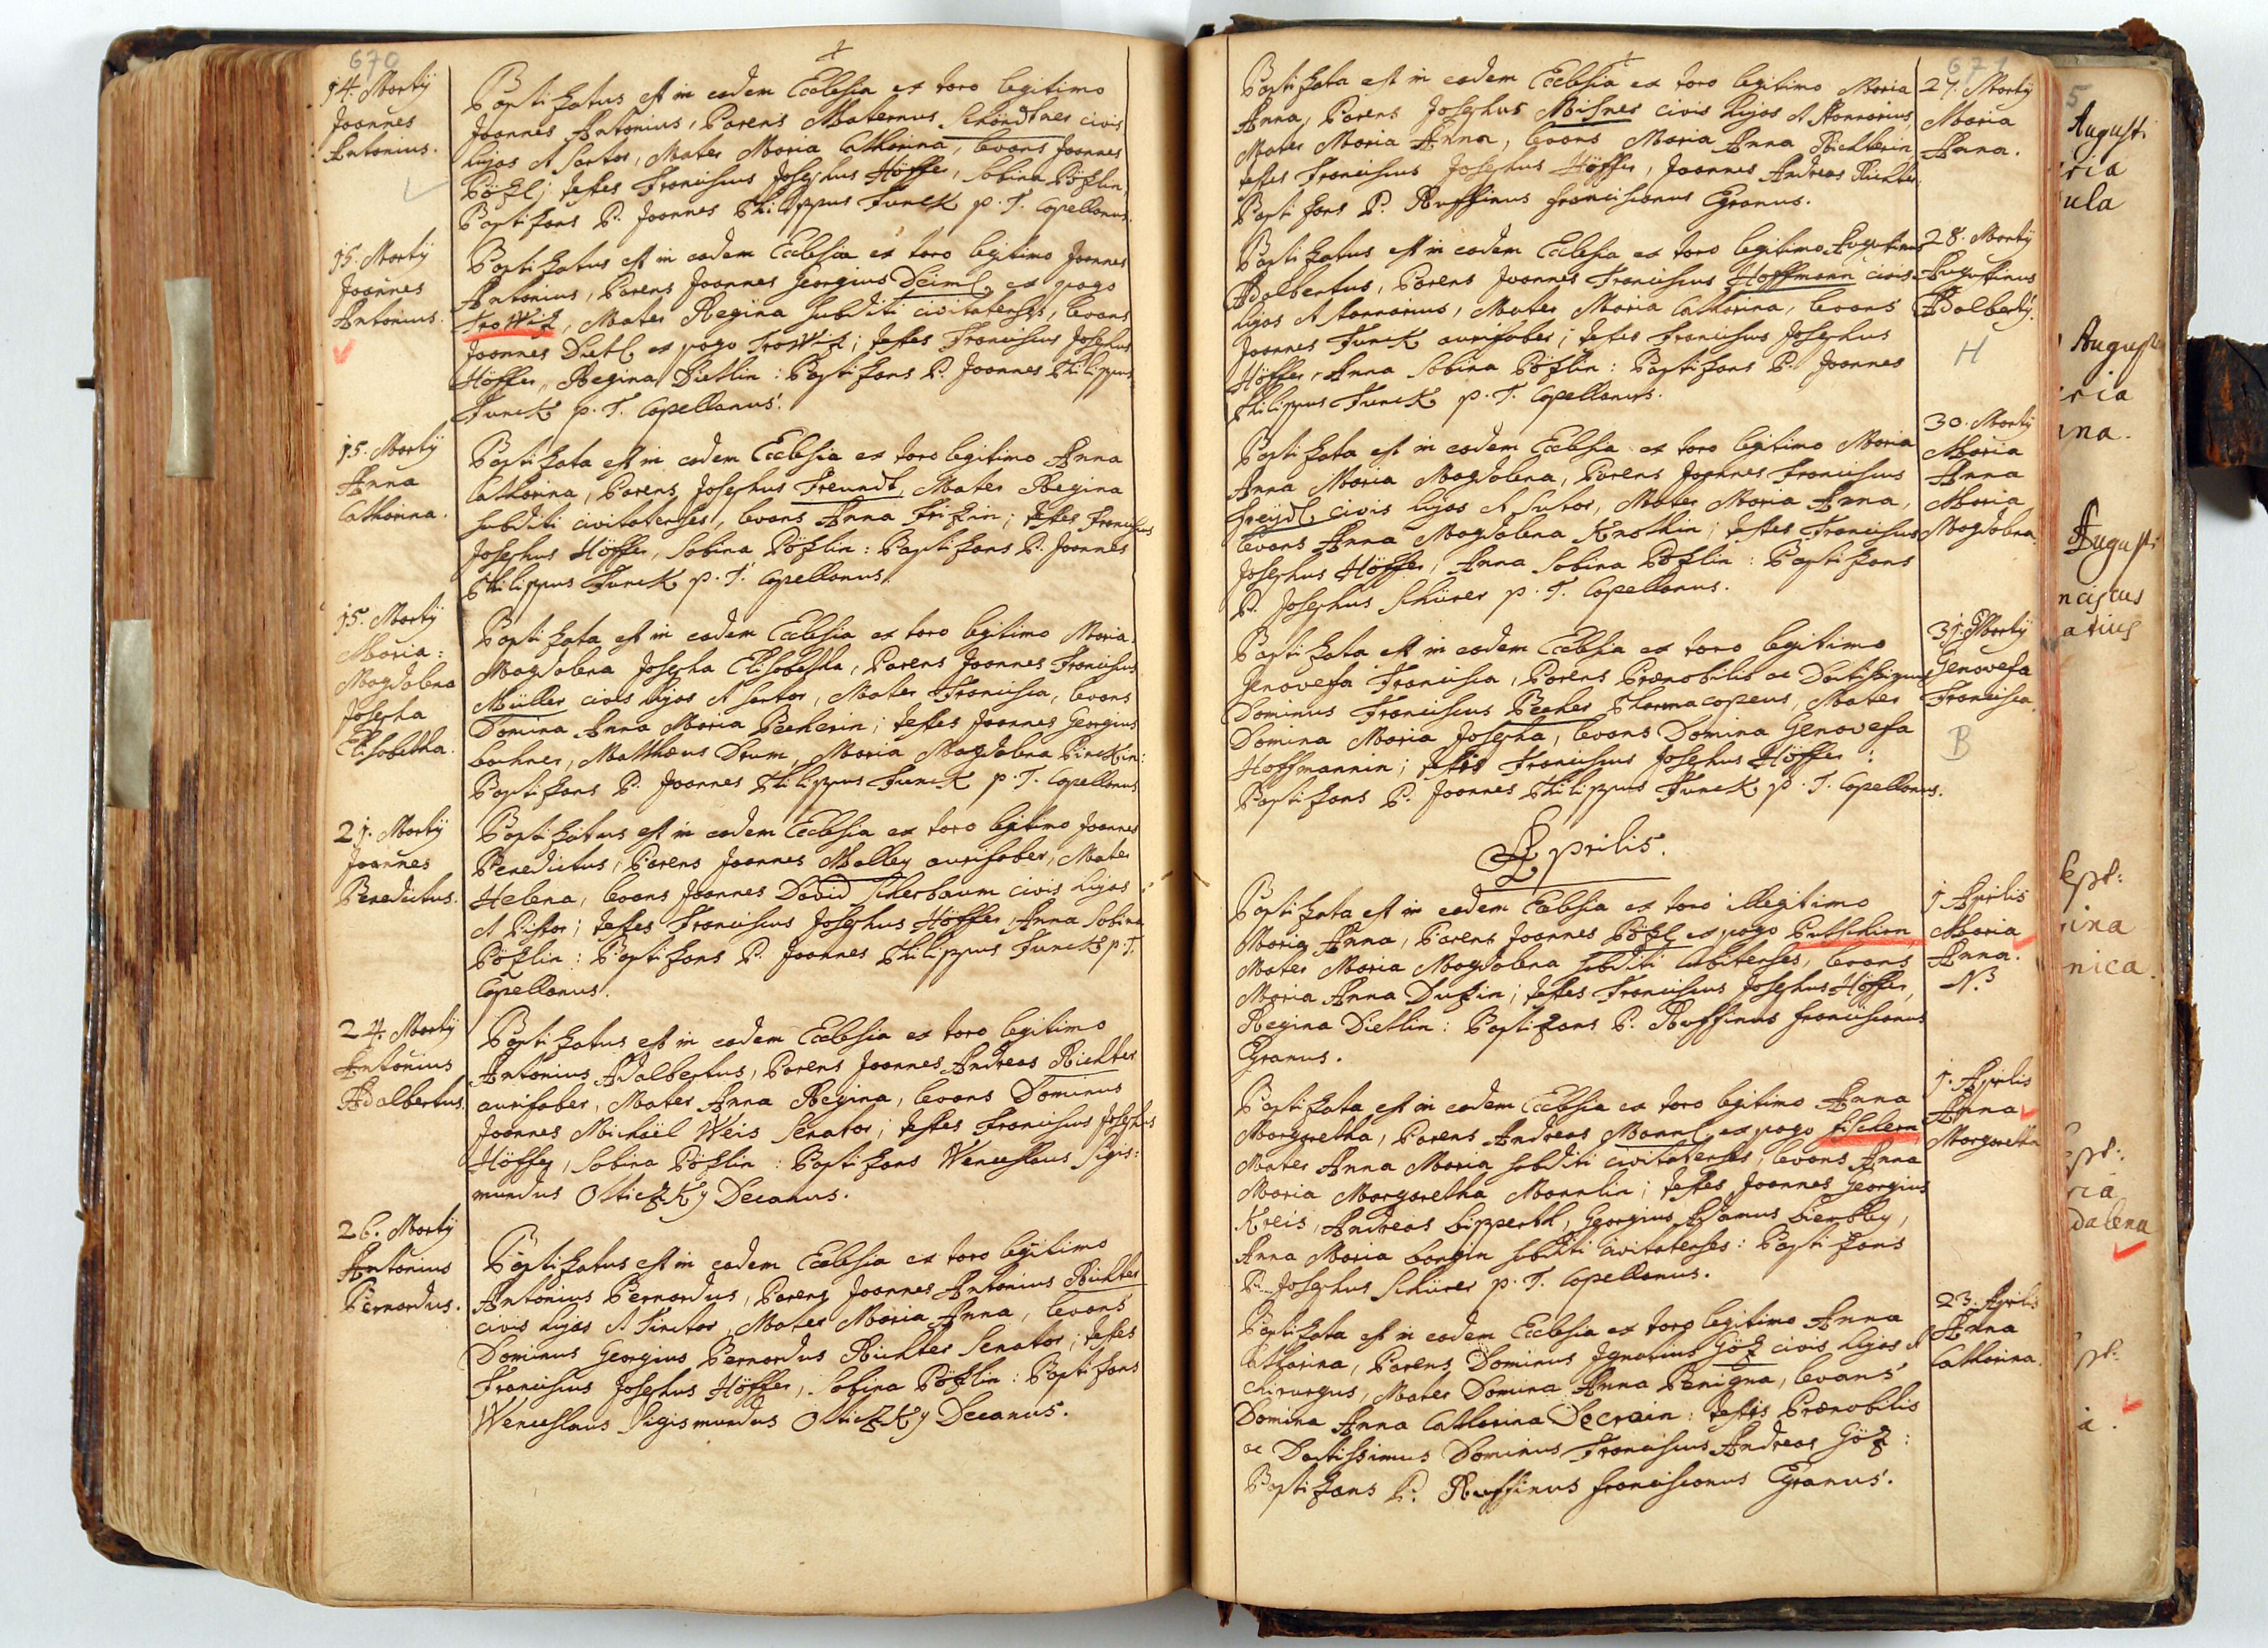 670
14. Martÿ
Joannes
Antonius.
Baptizatus est in eadem Ecclesia ex toro legitimo
Joannes Antonius, Parens Maternus Schöndtner civis
hujas et Sartor, Mater Maria Catharina, levans Joannes
Pözl; testes Franciscus Josephus Höffer, Sabina Pözlin,
Baptizans P. Joannes Philippus Funck p. T. Capellanus.
15. Martÿ
Joannes
Antonius.
Baptizatus est in eadem Ecclesia ex toro legitimo Joannes
Antonius, Parens Joannes Georgius Deiml, ex pago
Trowitz, Mater Regina subditi civitatenses, levans
Joannes Dietl ex pago Trowitz; testes Franciscus Josephus
Höffer, Regina Dietlin: Baptizans P. Joannes Philippus
Funck p. T. Capellanus.
15. Martÿ
Anna
Catharina.
Baptizata est in eadem Ecclesia ex toro legitimo Anna
Catharina, Parens Josephus Freundt, Mater Regina
subditi civitatenses, levans Anna Frizin; testes Franciscus
Josephus Höffer, Sabina Pözlin: Baptizans P. Joannes
Philippus Funck p. T. Capellanus.
15. Martÿ
Maria:
Magdalena
Josepha
Elisabetha.
Baptizata est in eadem Ecclesia ex toro legitimo Maria
Magdalena Josepha Elisabetha, Parens Joannes Franciscus
Müller civis hujas et Sartor, Mater Francisca, levans
Domina Anna Maria Becherin; testes Joannes Georgius
Lochner, Matthæus Drum, Maria Magdalena Pinckin:
Baptizans P. Joannes Philippus Funck p. T. Capellanus
21. Martÿ
Joannes
Benedictus.
Baptizatus est in eadem Ecclesia ex toro legitimo Joannes
Benedictus, Parens Joannes Malley aurifaber, Mater
Helena, levans Joannes David Scherbaum civis hujas
et Pistor; testes Franciscus Josephus Höffer, Anna Sabina
Pözlin: Baptizans P. Joannes Philippus Funck p. T.
Capellanus.
24. Martÿ
Antonius
Adalbertus.
Baptizatus est in eadem Ecclesia ex toro legitimo
Antonius Adalbertus, Parens Joannes Andreas Richter
aurifaber, Mater Anna Regina, levans Dominus
Joannes Michaël Weis Senator; testes Franciscus Josephus
Höffer, Sabina Pözlin: Baptizans Wenceslaus Sigis:
mundus Osticzky Decanus.
26. Martÿ
Antonius
Bernardus.
Baptizatus est in eadem Ecclesia ex toro legitimo
Antonius Bernardus, Parens Joannes Antonius Richter
civis hujas et Tinctor, Mater Maria Anna, levans
Dominus Georgius Bernardus Richter Senator; testes
Franciscus Josephus Höffer, Sabina Pözlin: Baptizans
Wenceslaus Sigismundus Osticzky Decanus.
671
Baptizata est in eadem Ecclesia ex toro legitimo Maria
Anna, Parens Josephus Misner civis hujas et Stannarius,
Mater Maria Anna, levans Maria Anna Richterin
testes Franciscus Josephus Höffer, Joannes Andreas Richter:
Baptizans P. Ruffinus Franciscanus Egranus.
27. Martÿ
Maria
Anna.
Baptizatus est in eadem Ecclesia ex toro legitimo Augustinus
Adalbertus, Parens Joannes Franciscus Hoffmann civis
hujas et Stannarius, Mater Maria Catharina, levans
Joannes Funck aurifaber; testes Franciscus Josephus
Höffer, Anna Sabina Pözlin: Baptizans P. Joannes
Philippus Funck p. T. Capellanus.
28. Martÿ
Augustinus
Adalbertÿ.
H
Baptizata est in eadem Ecclesia ex toro legitimo Maria
Anna Maria Magdalena, Parens Joannes Franciscus
Freÿdl civis hujas et Sutor, Mater Maria Anna,
levans Anna Magdalena Knothin; testes Franciscus
Josephus Höffer, Anna Sabina Pözlin: Baptizans
P. Josephus Schürer p. T. Capellanus.
30. Martÿ
Maria
Anna
Maria
Magdalena.
Baptizata est in eadem Ecclesia ex toro legitimo
Genovefa Francisca, Parens Prænobilis ac Doctissimus
Dominus Franciscus Becher Pharmacopeus, Mater
Domina Maria Josepha, levans Domina Genovefa
Hoffmannin; testis Franciscus Josephus Höffer:
Baptizans P. Joannes Philippus Funck p. T. Capellanus.
31. Martÿ
Genovefa
Francisca.
B
Aprilis.
Baptizata est in eadem Ecclesia ex toro illegitimo
Maria Anna, Parens Joannes Pözl ex pago Putschirn,
Mater Maria Magdalena subditi cubitenses, levans
Maria Anna Duzin; testes Franciscus Josephus Höffer,
Regina Dietlin: Baptizans P. Ruffinus Franciscanus
Egranus.
1. Aprilis
Maria
Anna.
N.3
Baptizata est in eadem Ecclesia ex toro legitimo Anna
Margaretha, Parens Andreas Mannl ex pago Fischern,
Mater Anna Maria subditi civitatenses, levans Anna
Maria Margaretha Mannlin; testes Joannes Georgius
Kreis, Andreas Lippertd, Georgius Adamus
Anna Maria subditi civitatenses: Baptizans
P. Josephus Schürer p. T. Capellanus.
1. Aprilis
Anna
Margaretha
Baptizata est in eadem Ecclesia ex toro legitimo Anna
Catharina, Parens Dominus Ignatius Göz civis hujas et
Chirurgus, Mater Domina Anna Benigna, levans
Domina Anna Catharina Decrain: testis Prænobilis
ac Doctissimus Dominus Franciscus Andreas Göz:
Baptizans P. Ruffinus Franciscanus Egranus.
23. Aprilis
Anna
Catharina.
5
Augusti
ria
ula
August
ria
na.
Augusti
nciscus
atius
Sept:
rina
nica.
ept:
ria
dalena
pt:
a.